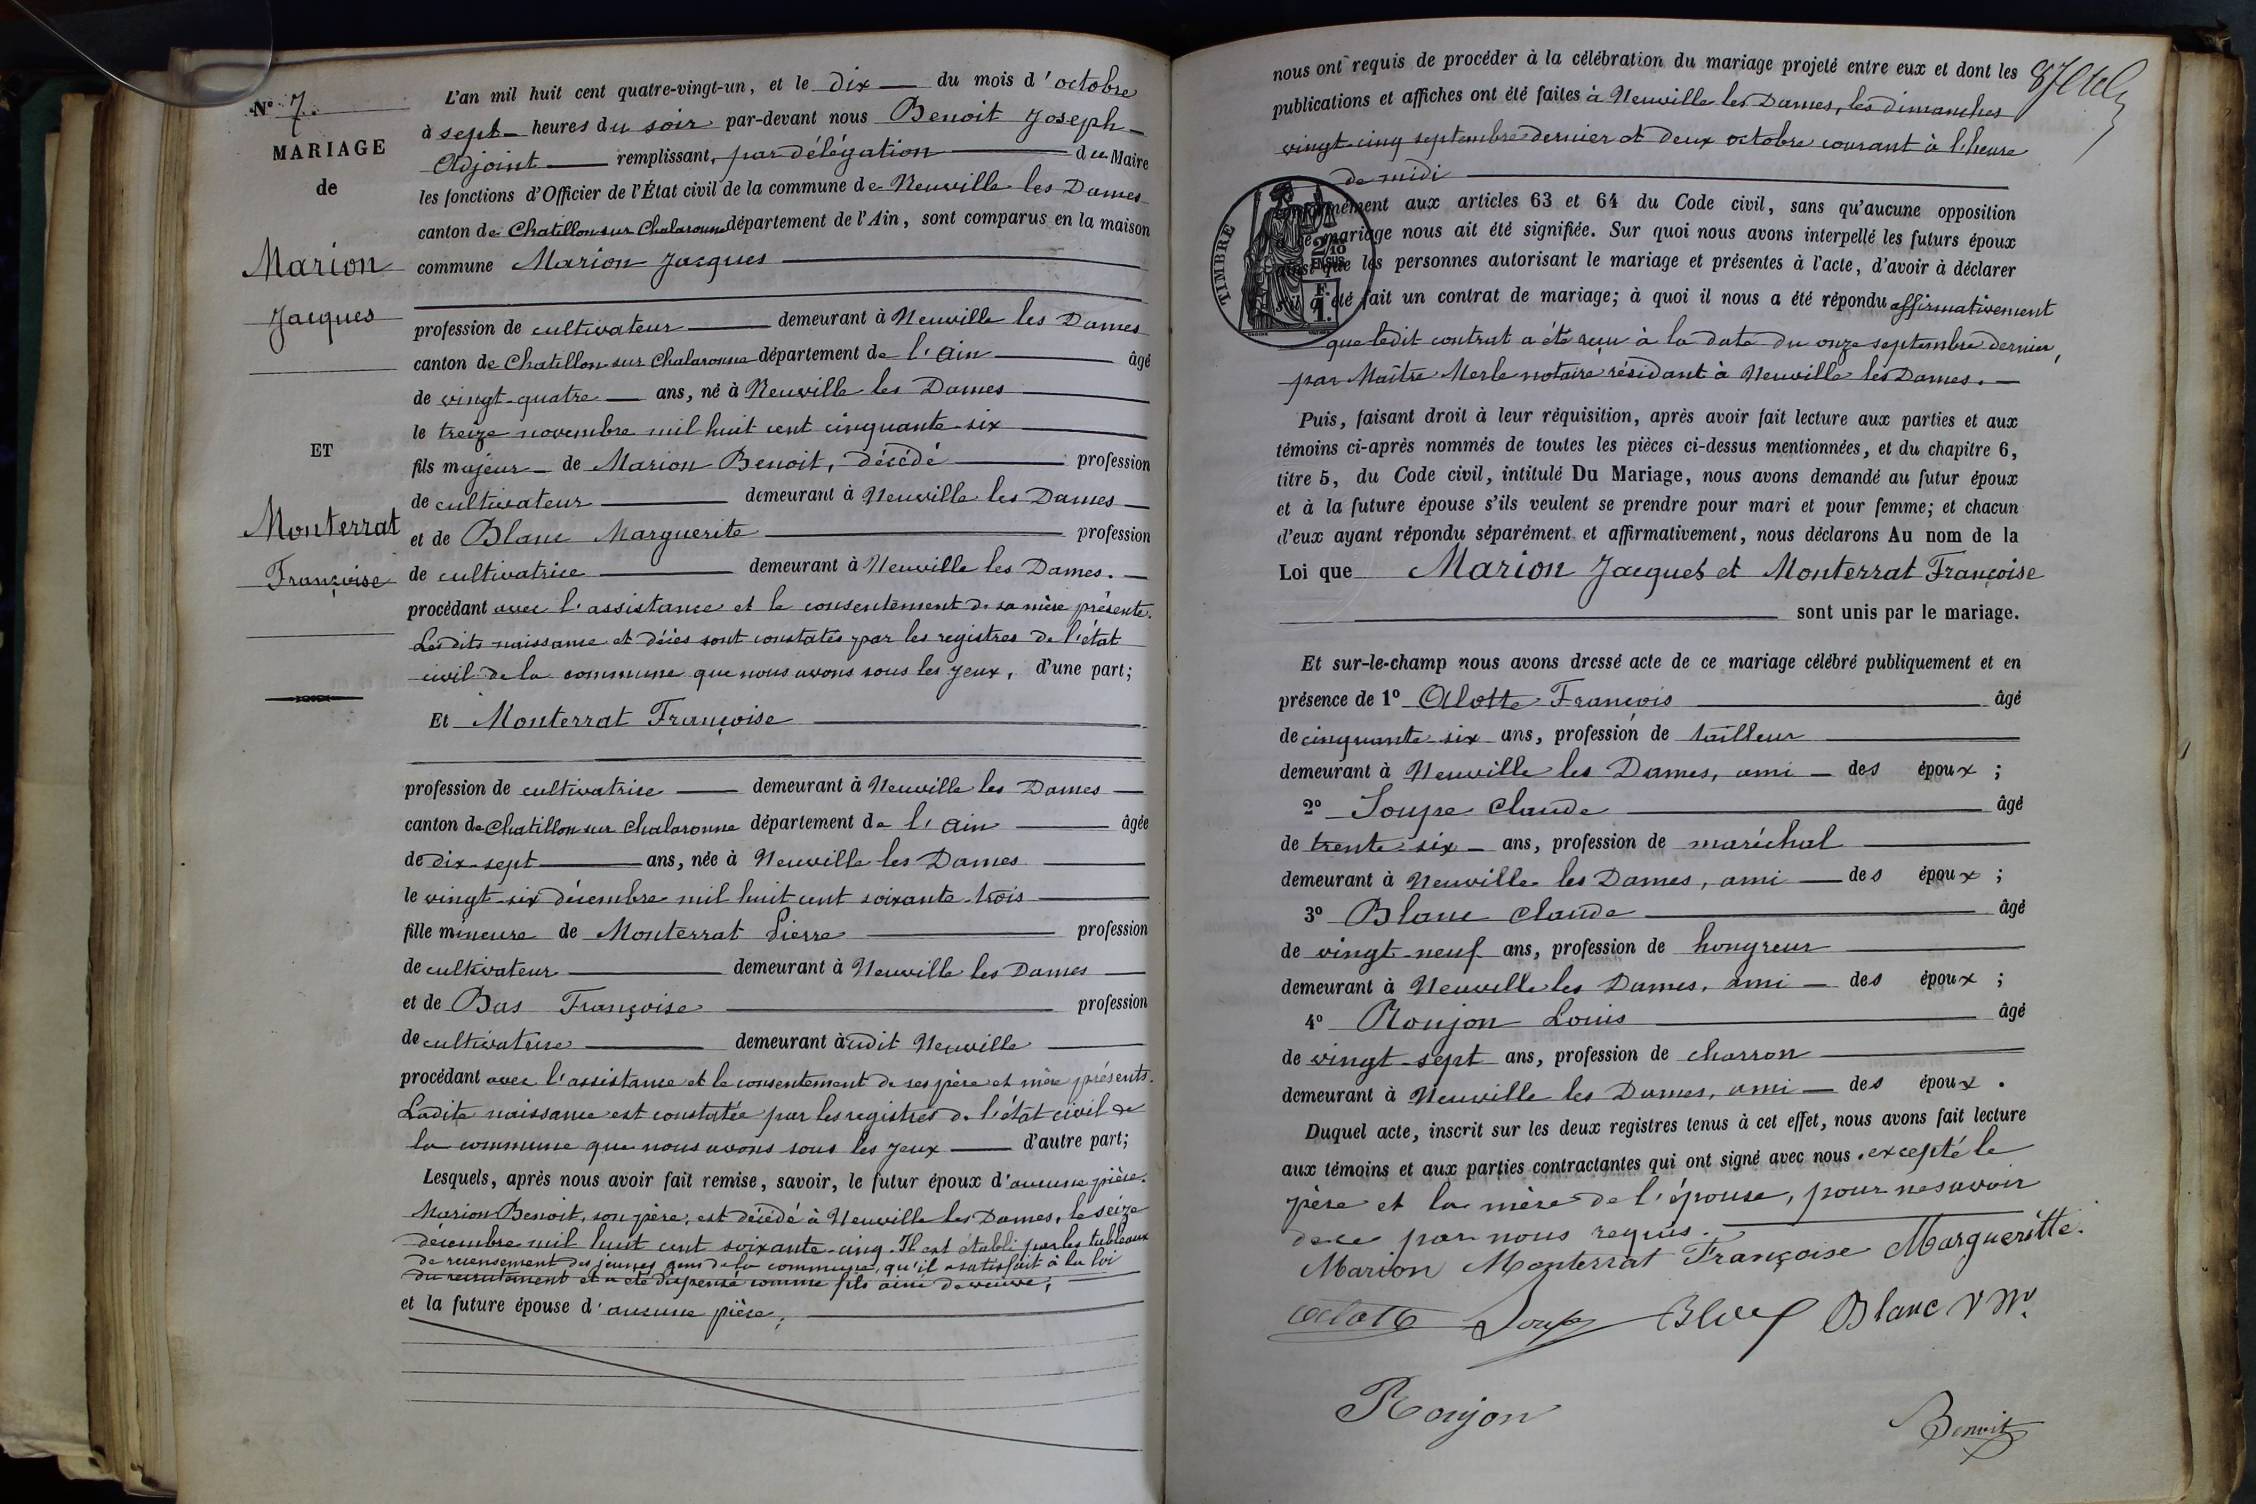 N° 7.
MARIAGE
de
Marion
Jacques
ET
Monterrat
Françoise
L'an mil huit cent quatre-vingt-un, et le dix du mois d'octobre
à sept heures du soir par-devant nous Benoit Joseph
Adjoint remplissant, par délégation du Maire
les fonctions d'Officier de l'État civil de la commune de Neuville les Dames
canton de Chatillon sur Chalaronne département de l'Ain, sont comparus en la maison
commune Marion Jacques
profession de cultivateur demeurant à Neuville les Dames
canton de Chatillon sur Chalaronne département de l'Ain âgé
de vingt-quatre ans, né à Neuville les Dames
le treize novembre mil huit cent cinquante-six
fils majeur de Marion Benoit, décédé profession
de cultivateur demeurant à Neuville les Dames
et de Blanc Marguerite profession
de cultivatrice demeurant à Neuville les Dames.
procédant avec l'assistance et le consentement de sa mère présente.
Les dits naissance et décès sont constatés par les registres de l'état
civil de la commune que nous avons sous les yeux, d'une part;
Et Monterrat Françoise
profession de cultivatrice demeurant à Neuville les Dames
canton de Chatillon sur Chalaronne département de l'Ain âgée
de dix-sept ans, née à Neuville les Dames
le vingt-six décembre mil huit cent soixante-trois
fille mineure de Monterrat Pierre profession
de cultivateur demeurant à Neuville les Dames
et de Bas Françoise profession
de cultivatrice demeurant àudit Neuville
procédant avec l'assistance et le consentement de ses père et mère présents.
Ladite naissance est constatée par les registres de l'état civil de
la commune que nous avons sous les yeux d'autre part;
Lesquels, après nous avoir fait remise, savoir, le futur époux d'aucune pièce.
Marion Benoit, son père, est décédé à Neuville les Dames, le seize
décembre mil huit cent soixante-cinq. Il est établi par les tableaux
de recensement des jeunes gens de la commune, qu'il a satisfait à la loi
du recrutement et a été dispensé comme fils ainé de veuve;
et la future épouse d'aucune pièce;
nous ont requis de procéder à la célébration du mariage projeté entre eux et dont les
publications et affiches ont été faites à Neuville les Dames, les dimanches
vingt-cinq septembre dernier et deux octobre courant à l'heure
de midi
conformément aux articles 63 et 64 du Code civil, sans qu'aucune opposition
à ce mariage nous ait été signifiée. Sur quoi nous avons interpellé les futurs époux
ainsi que les personnes autorisant le mariage et présentes à l'acte, d'avoir à déclarer
s'il a été fait un contrat de mariage; à quoi il nous a été répondu affirmativement
que ledit contrat a été reçu à la date du onze septembre dernier,
par Maître Merle notaire résidant à Neuville les Dames.
TIMBRE
2/10
EN SUS
1 F.
Puis, faisant droit à leur réquisition, après avoir fait lecture aux parties et aux
témoins ci-après nommés de toutes les pièces ci-dessus mentionnées, et du chapitre 6,
titre 5, du Code civil, intitulé Du Mariage, nous avons demandé au futur époux
et à la future épouse s'ils veulent se prendre pour mari et pour femme; et chacun
d'eux ayant répondu séparément et affirmativement, nous déclarons Au nom de la
Loi que Marion Jacques et Monterrat Françoise
sont unis par le mariage.
Et sur-le-champ nous avons dressé acte de ce mariage célébré publiquement et en
présence de 1° Alotte François âgé
de cinquante-six ans, profession de tailleur
demeurant à Neuville les Dames, ami des époux;
2° Soupe Claude âgé
de trente-six ans, profession de maréchal
demeurant à Neuville les Dames, ami des époux;
3° Blanc Claude âgé
de vingt-neuf ans, profession de hongreur
demeurant à Neuville les Dames, ami des époux;
4° Roujon Louis âgé
de vingt-sept ans, profession de charron
demeurant à Neuville les Dames, ami des époux.
Duquel acte, inscrit sur les deux registres tenus à cet effet, nous avons fait lecture
aux témoins et aux parties contractantes qui ont signé avec nous. excepté le
père et la mère de l'épouse, pour ne savoir
de ce par nous requis.
Marion Monterrat Françoise Margueritte.
Soupe Blanc V M.
Roujon
Benoit